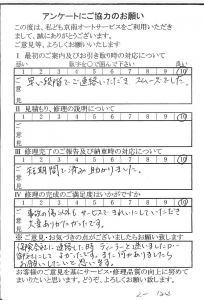 アンケートにご協力のお願い
この度は、私ども京南オートサービスをご利用いただき
まして、誠にありがとうございます。
ご意見等、よろしくお願いいたします
Ⅰ 最初のご案内及びお引き取り時の対応について
数字を○で囲んで下さい 良い
1 2 3 4 5 6 7 8 9 10
早い段階でご連絡いただきスムーズでした。
Ⅱ 見積もり、修理の説明について
1 2 3 4 5 6 7 8 9 10
Ⅲ 修理完了のご報告及び納車時の対応について
1 2 3 4 5 6 7 8 9 10
短期間で済み助かりました。
Ⅳ 修理の完成のご満足度はいかがですか
1 2 3 4 5 6 7 8 9 10
事故の傷以外もサービスできれいにしていただき
大変ありがたかったです。
※ ご意見・お気づきの点がございましたらお願い致します
保険会社に連絡した時 ディーラーと迷いましたが
よかったです。また何かありましたら
お願いしたいと思います。
お客様のご意見を基にサービス・修理品質の向上に努めて
まいりたいと思います。どうぞ、よろしくお願い致します。